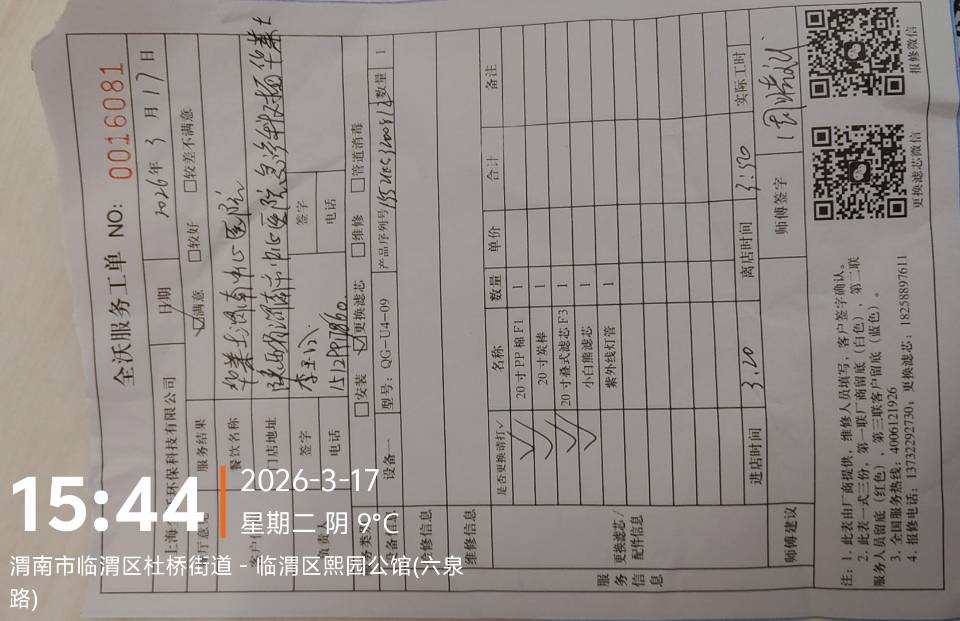 全沃服务工单 NO: 0016081
环保科技有限公司
日期
2026年3月17日
服务结果
满意
较好
较差不满意
餐饮名称
华莱士渭南市中心医院
门店地址
签字
签字
电话
151
电话
安装
更换滤芯
维修
管道消毒
设备一
型号: QG-U4-09
产品序列号
数量
1
维修信息
更换滤芯/
配件信息
是否更换请打✓
名称
数量
单价
合计
备注
20 寸 PP 棉 F1
1
20 寸炭棒
1
20 寸叠式滤芯 F3
1
小白熊滤芯
1
紫外线灯管
1
服务信息
进店时间
3.20
离店时间
3:50
实际工时
师傅建议
师傅签字
注: 1. 此表由厂商提供, 维修人员填写, 客户签字确认。
2. 此表一式三份, 第一联厂商留底 (白色), 第二联
服务人员留底 (红色), 第三联客户留底 (蓝色)。
3. 全国服务热线: 4006121926
4. 报修电话: 13732292730; 更换滤芯: 18258897611
更换滤芯微信
报修微信
15:44
2026-3-17
星期二 阴 9°C
渭南市临渭区杜桥街道 - 临渭区熙园公馆(六泉
路)